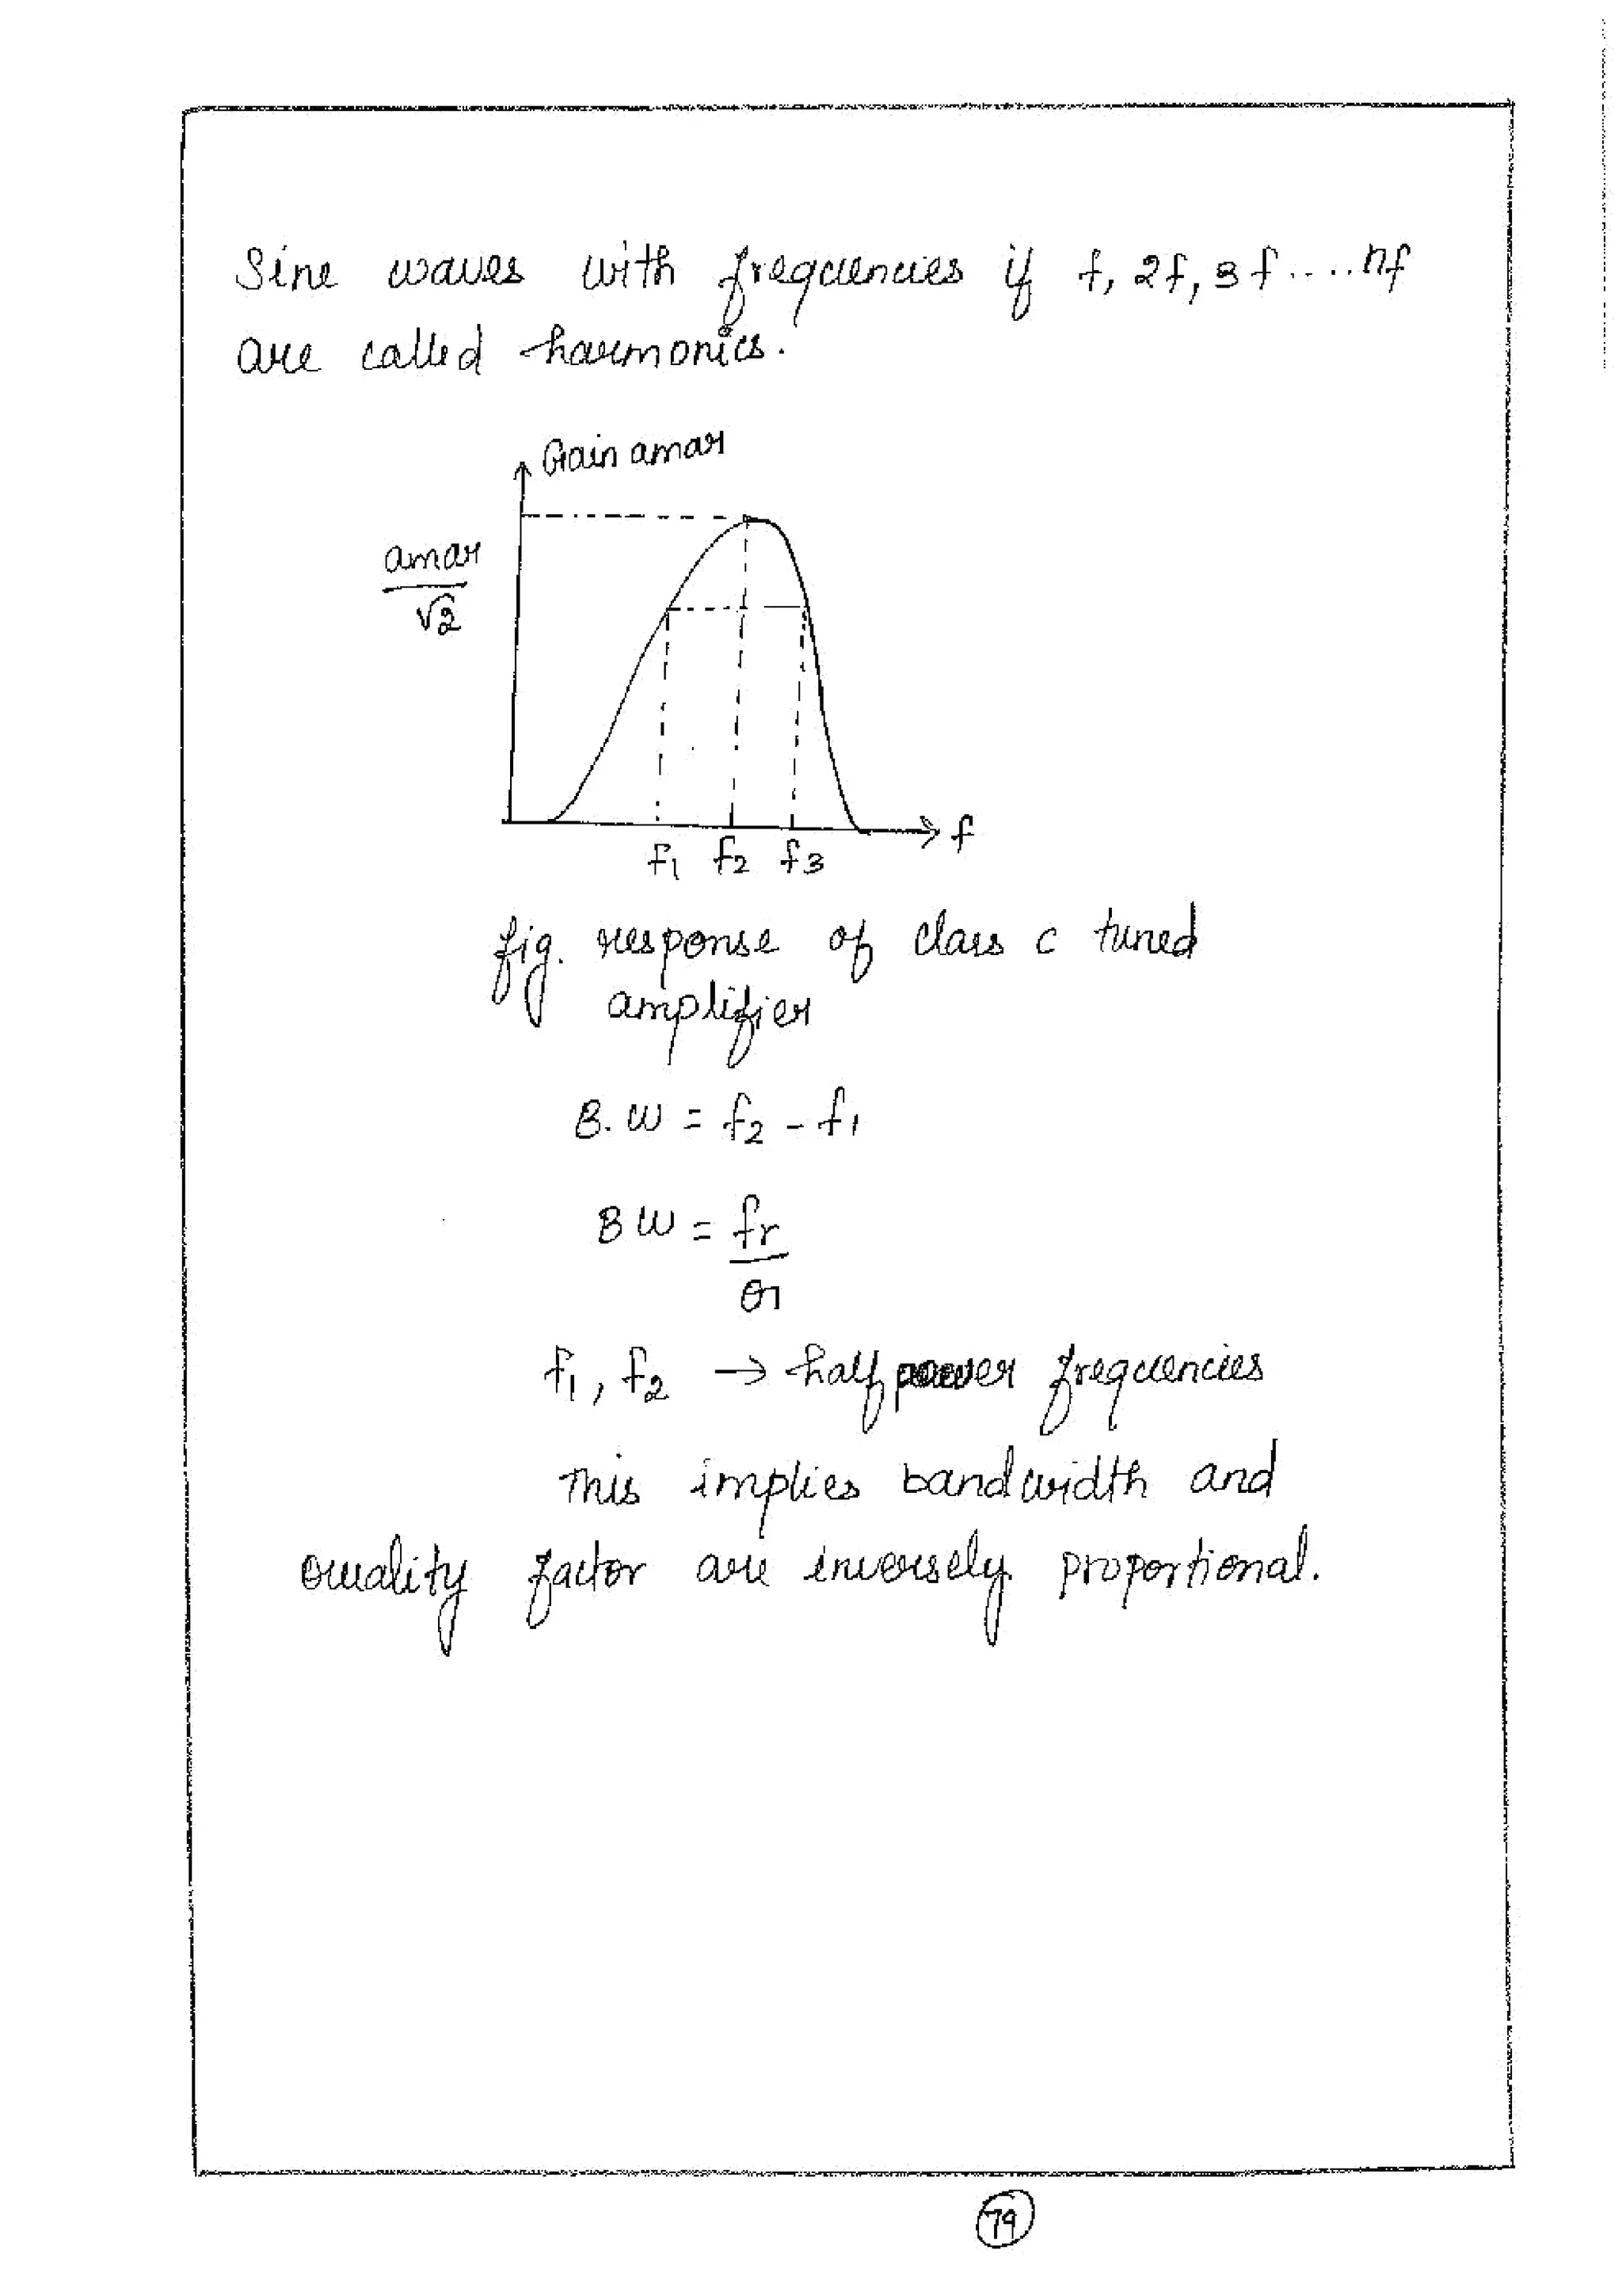 Sine waves with frequencies if f, 2f, 3f.....nf
are called harmonics.
Gain amax
amax
√2
f
f1 f2 f3
fig. response of class c tuned
amplifier
B.W = f2 - f1
BW = fr
Q
f1, f2 → half power frequencies
This implies bandwidth and
Quality factor are inversely proportional.
79